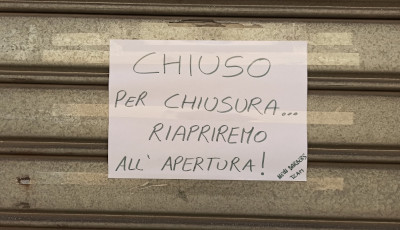 CHIUSO
PER CHIUSURA...
RIAPRIREMO
ALL' APERTURA!